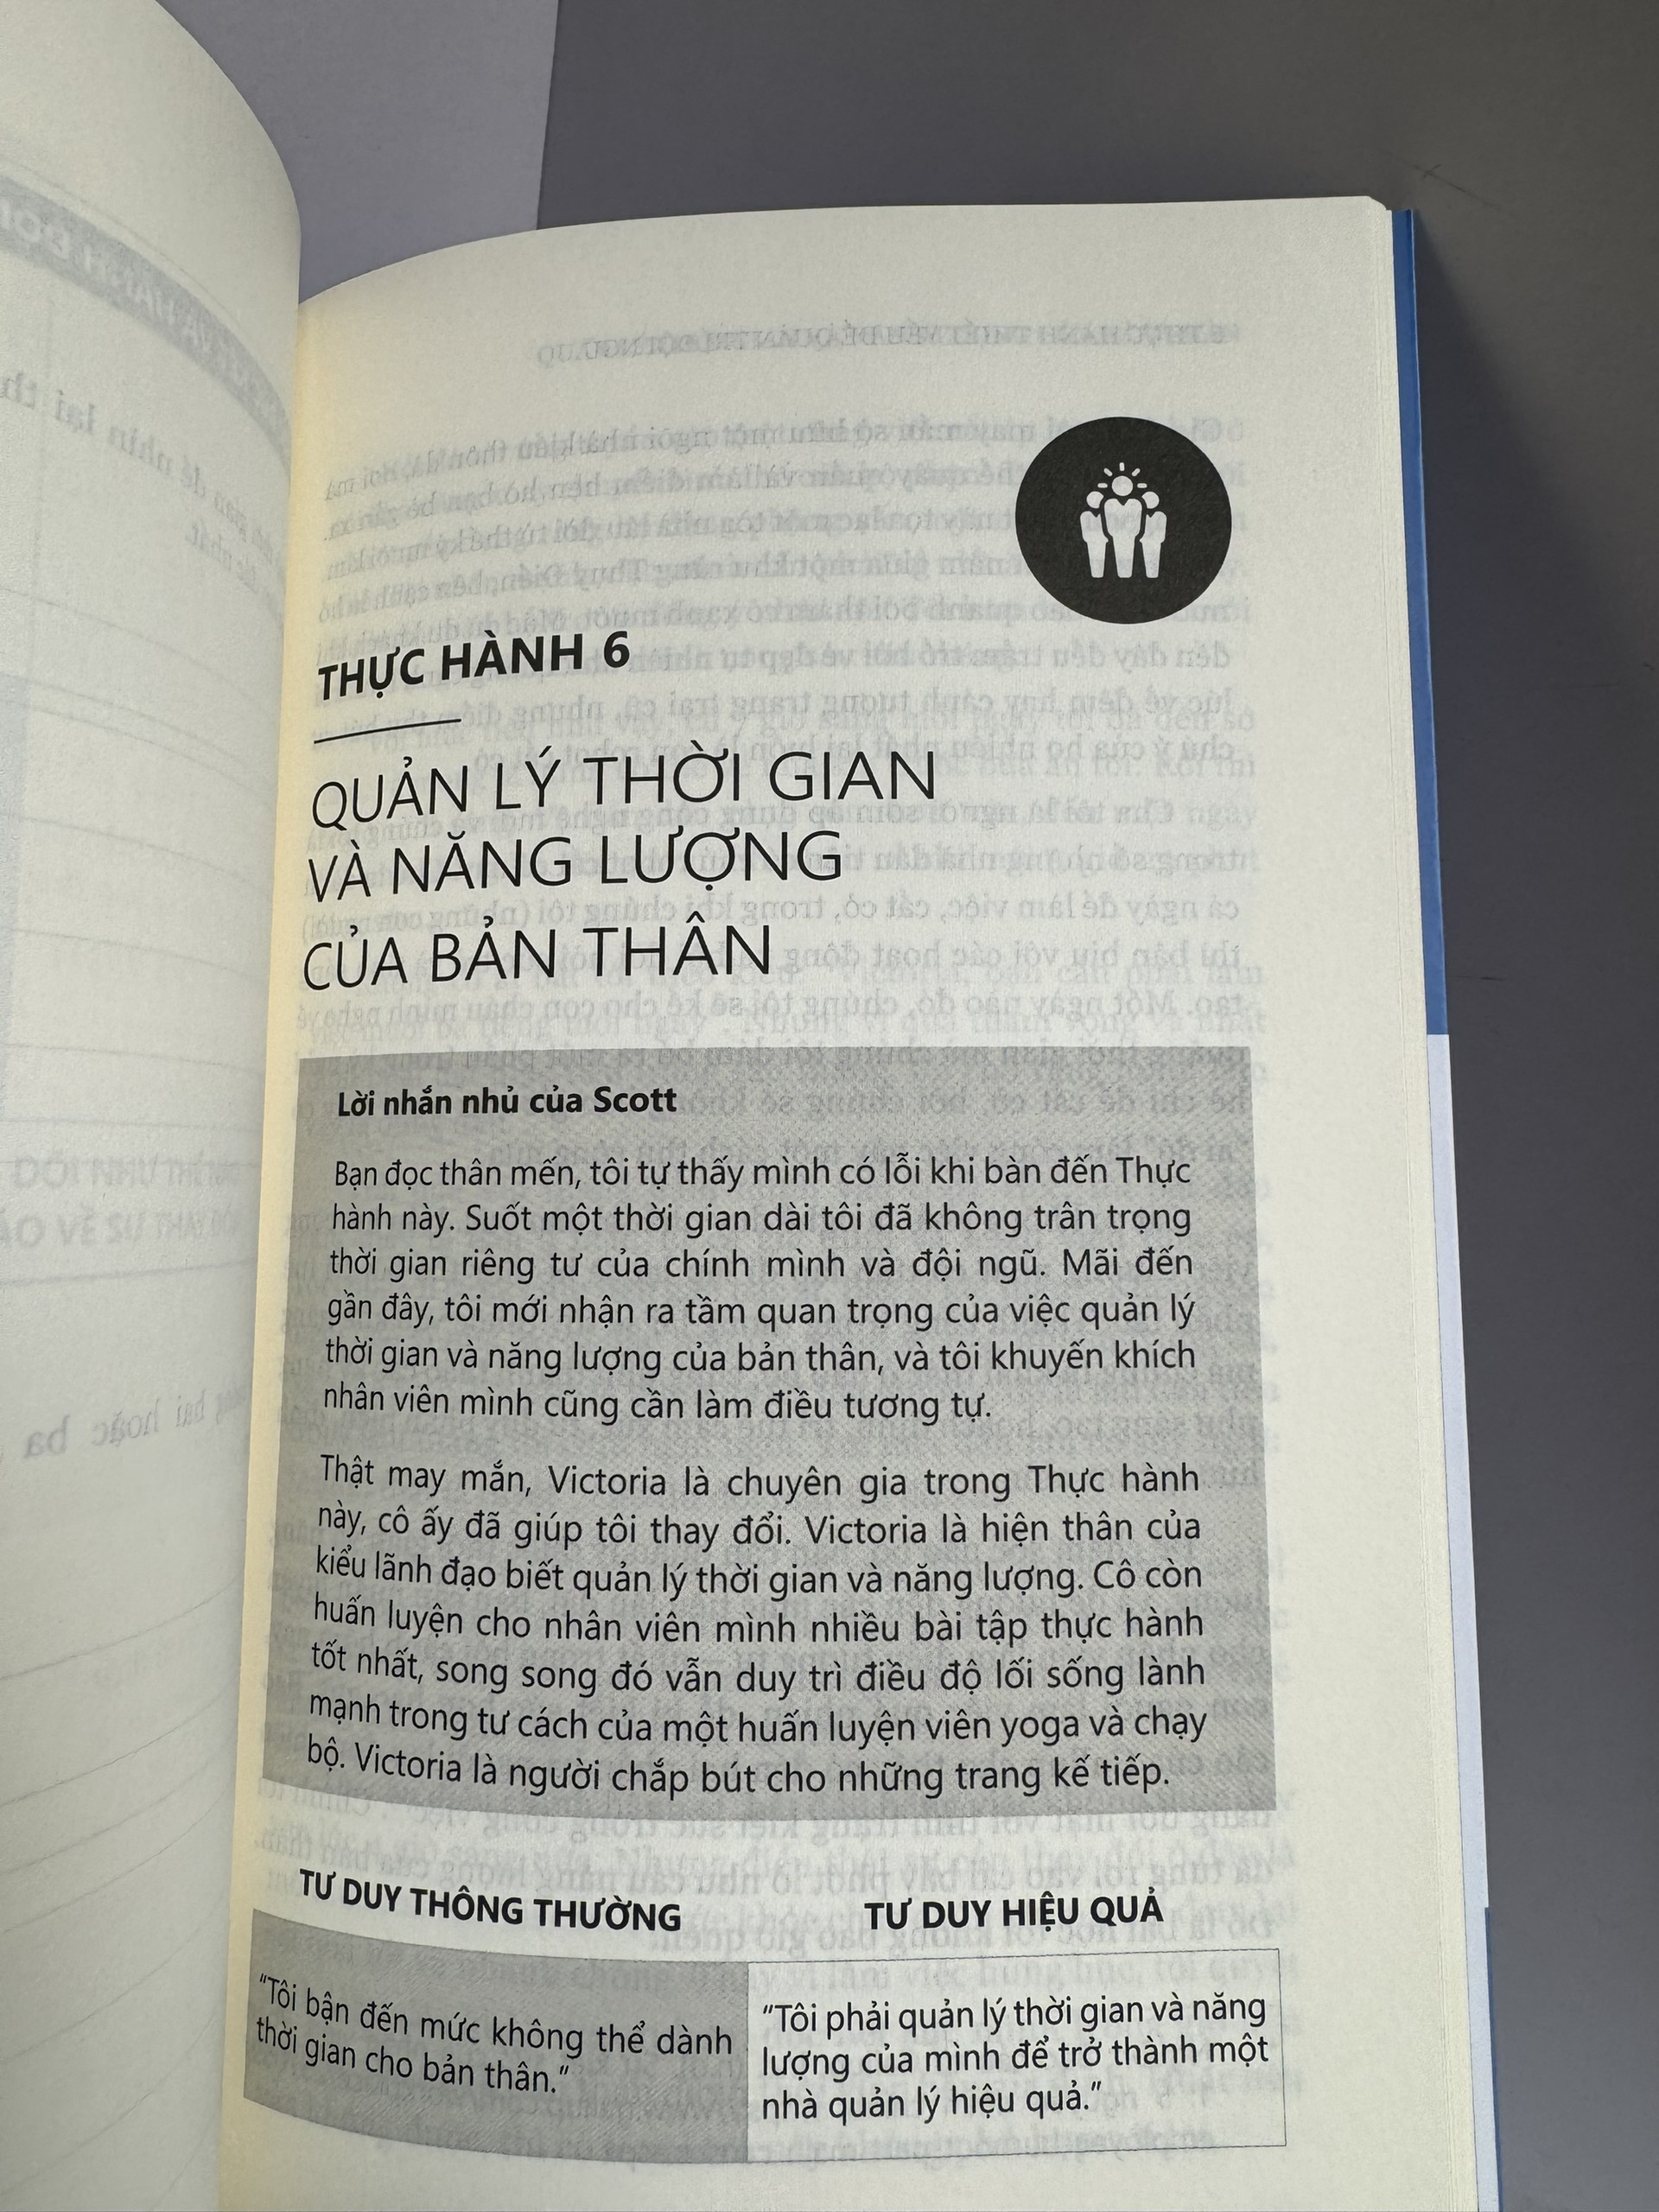 THỰC HÀNH 6
QUẢN LÝ THỜI GIAN
VÀ NĂNG LƯỢNG
CỦA BẢN THÂN
Lời nhắn nhủ của Scott
Bạn đọc thân mến, tôi tự thấy mình có lỗi khi bàn đến Thực
hành này. Suốt một thời gian dài tôi đã không trân trọng
thời gian riêng tư của chính mình và đội ngũ. Mãi đến
gần đây, tôi mới nhận ra tầm quan trọng của việc quản lý
thời gian và năng lượng của bản thân, và tôi khuyến khích
nhân viên mình cũng cần làm điều tương tự.
Thật may mắn, Victoria là chuyên gia trong Thực hành
này, cô ấy đã giúp tôi thay đổi. Victoria là hiện thân của
kiểu lãnh đạo biết quản lý thời gian và năng lượng. Cô còn
huấn luyện cho nhân viên mình nhiều bài tập thực hành
tốt nhất, song song đó vẫn duy trì điều độ lối sống lành
mạnh trong tư cách của một huấn luyện viên yoga và chạy
bộ. Victoria là người chắp bút cho những trang kế tiếp.
TƯ DUY THÔNG THƯỜNG
"Tôi bận đến mức không thể dành
thời gian cho bản thân."
TƯ DUY HIỆU QUẢ
"Tôi phải quản lý thời gian và năng
lượng của mình để trở thành một
nhà quản lý hiệu quả."